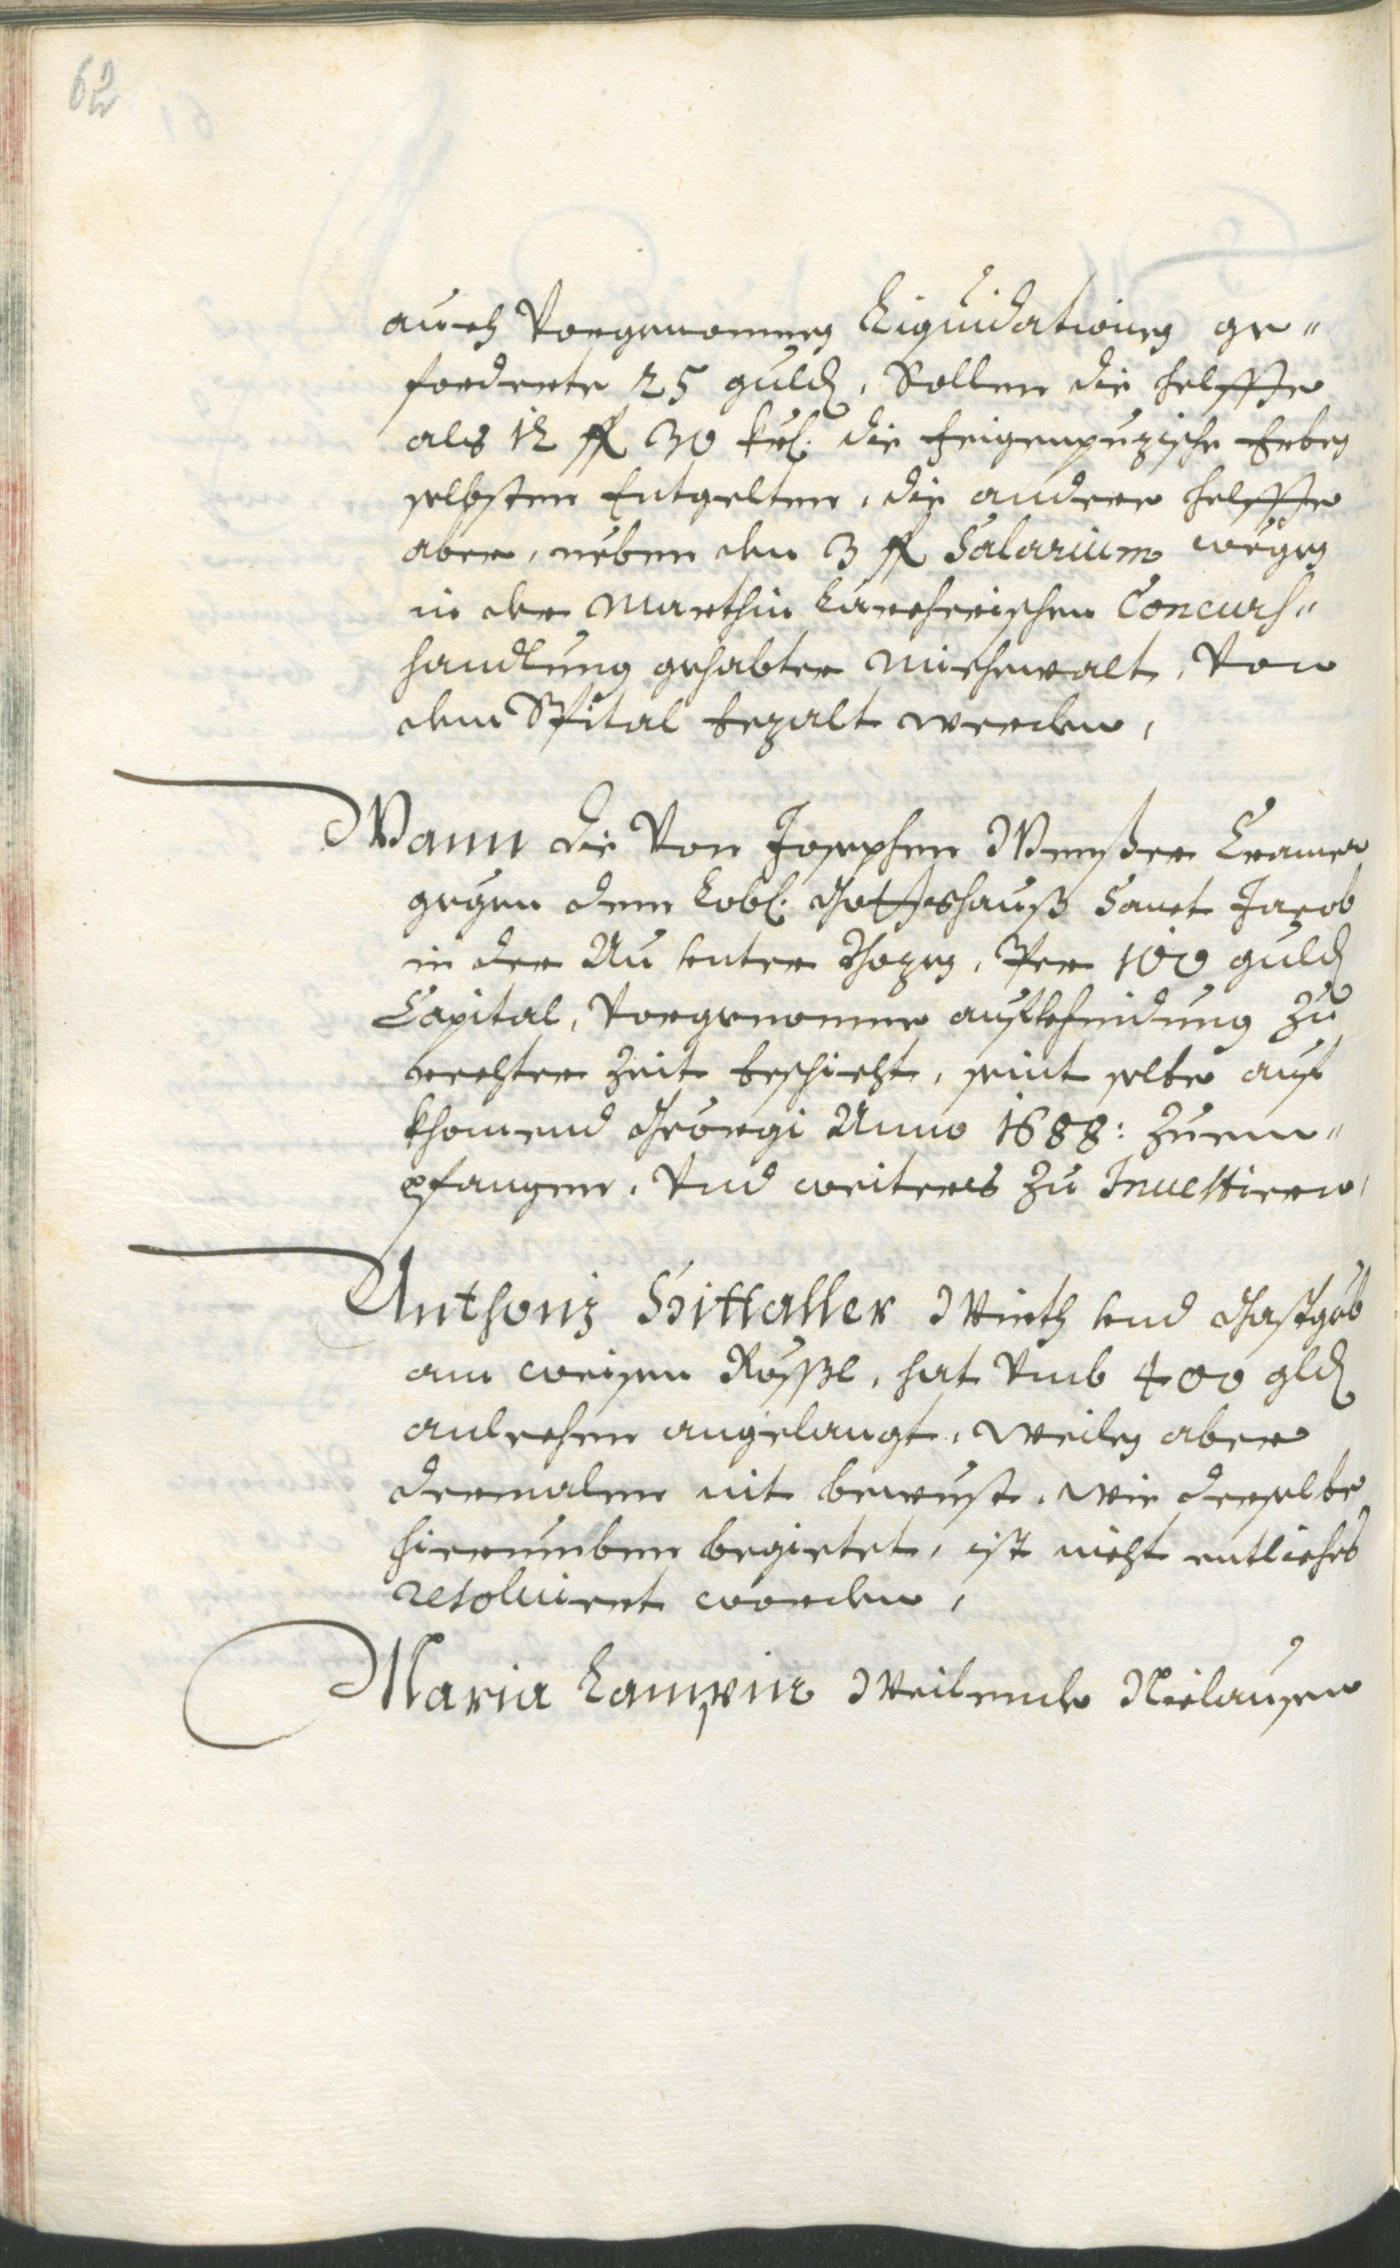 62
auch Vorgenomnen Liquidationen ge„
forderte 25 guld, Sollen die helffte
als 12 fl 30 kr. die Feigenpuzische Erben
selbsten Entgelten, die andere helffte
aber, neben den 3 fl Salarium wegen
in der Marthin Larcherischen Concurs„
handlung gehabter Miehewalt, Von
dem Spital bezalt werden,
Wann die Von Josephen Cramer
gegen dem Lobl. Gottshauß Sanct Jacob
in der Au unter Bozen, Per 100 guld
Capital, Vorgenomne aufkhindung zu
rechter Zeit beschicht, seint selbe auf
khomend Georgi Anno 1688: zuem„
pfangen, Vnd weiters zu Inuestiern,
Anthoni Hittaller Wirth und Gastgeb
am weisen Rössl, hat Vmb 400 gld
anlechen angelangt, weilen aber
dermalen nit bewust, wie derselbe
hierumben begietet, ist nicht entliches
resoluiert worden,
Maria Weilende Niclausen